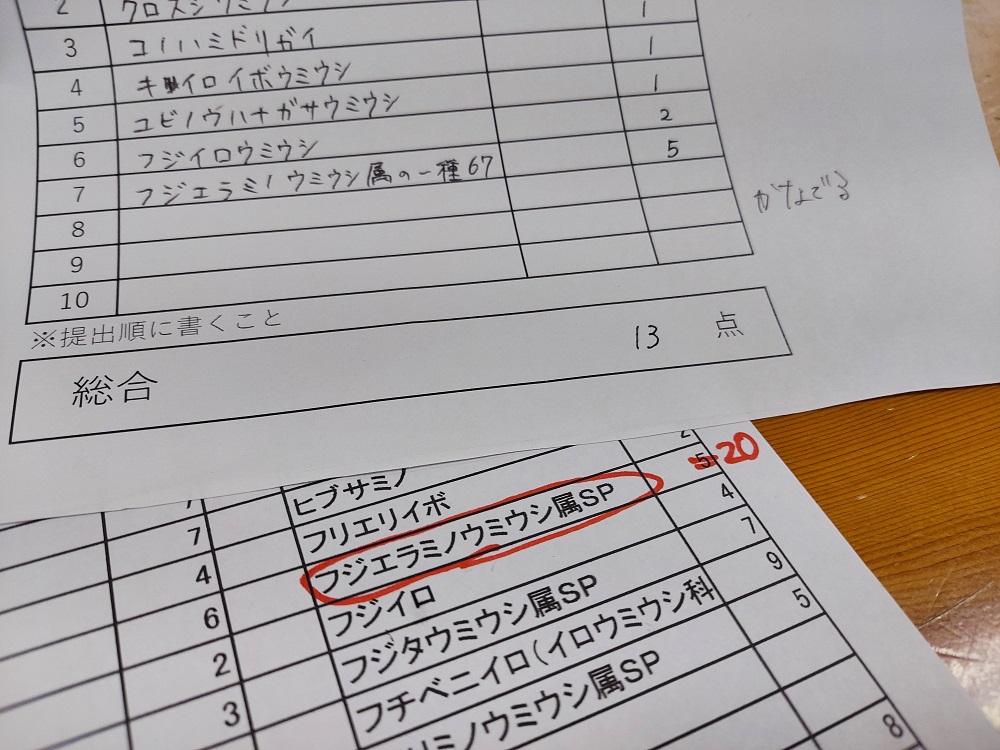 2 クロスジウミウシ
3 コノハミドリガイ 1
4 キイロイボウミウシ 1
5 ユビノウハナガサウミウシ 1
6 フジイロウミウシ 2
7 フジエラミノウミウシ属の一種67 5
8
9
10
かなでる
※提出順に書くこと
総合 13 点
ヒブサミノ 2
7 フリエリイボ 5 20
4 フジエラミノウミウシ属SP 4
6 フジイロ 7
2 フジタウミウシ属SP 9
3 フチベニイロ(イロウミウシ科 5
ミノウミウシ属SP
8